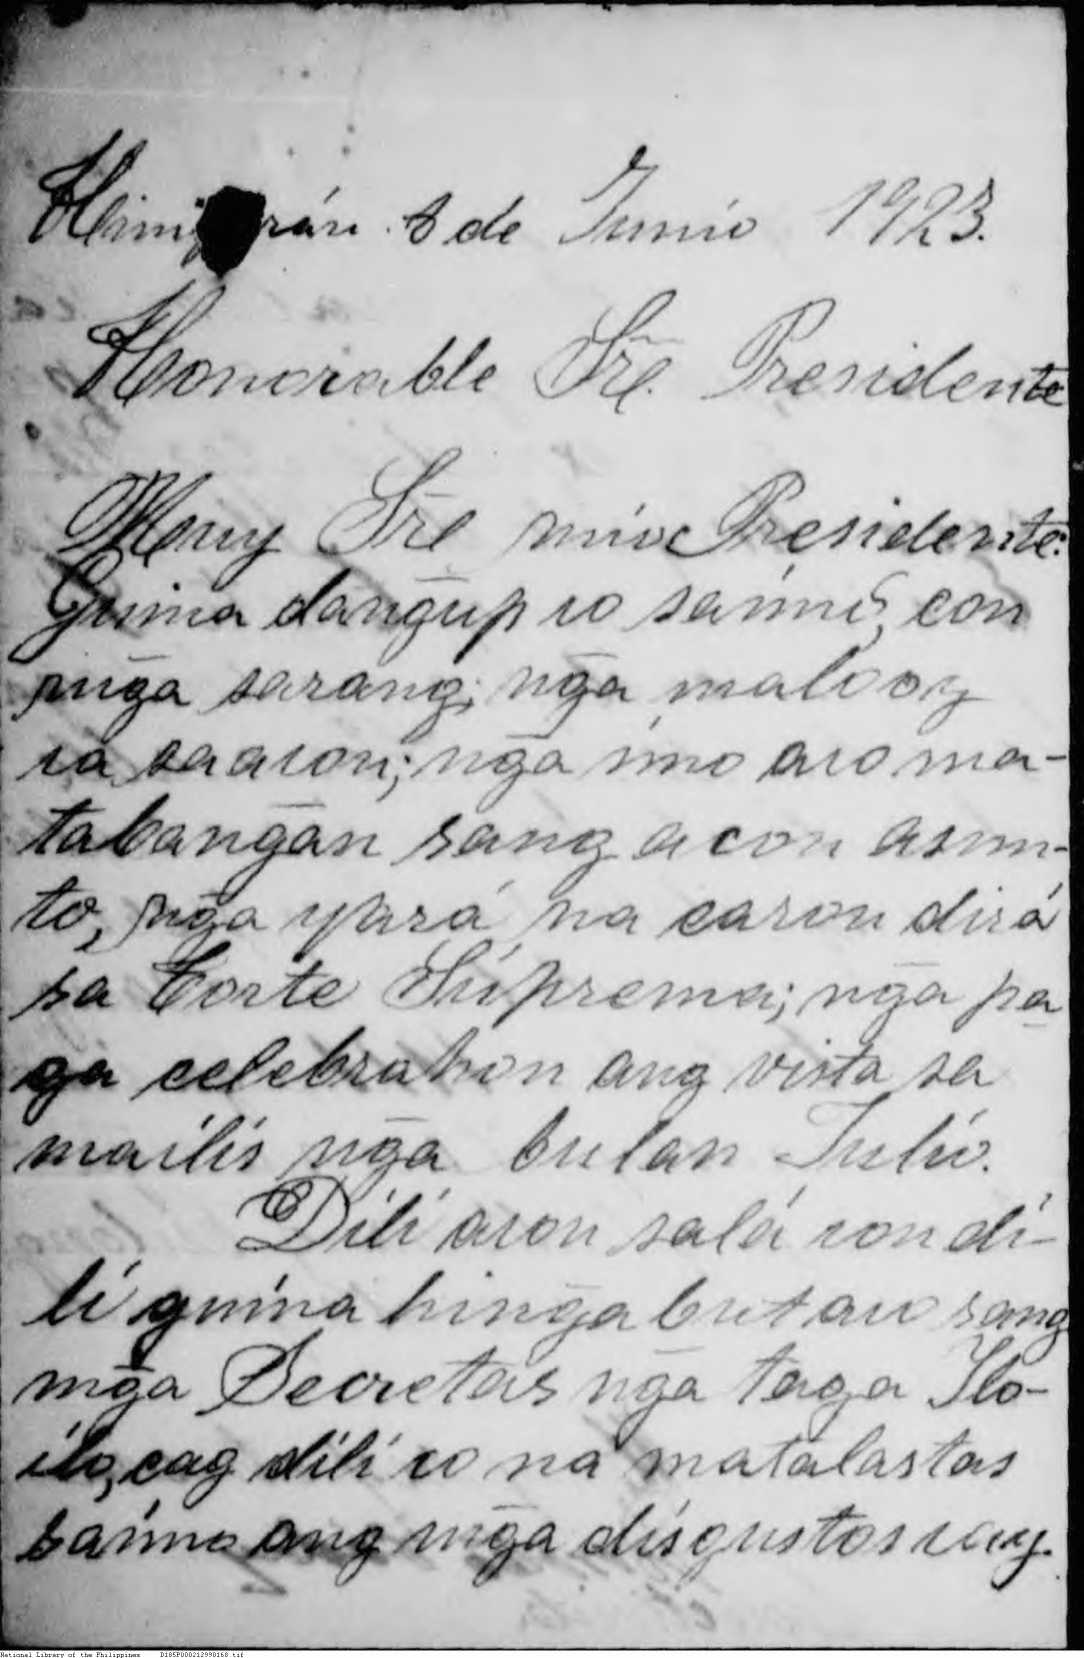 Himi rán. 8 de Junio 1923.
Honorable Sr̃e. Presidente
Muy Sr̃e mio Presidente:
Guina dang̃up co saimó, con
ng̃a sarang; ng̃a malooy
ca saacon; ng̃a imo aco ma-
tabang̃an sang acon asun-
to, ng̃a yará na caron dirá
sa Corte Súprema; ng̃a pa
ga celebrahon ang vista sa
maílis ng̃a bulan Julio.
Dili acon salá con di-
li guina hing̃abut aco sang
mg̃a Secretas ng̃a taga Ilo-
ilo, cag dili co na matalastas
saimo ang mg̃a disgustos cay.
National Library of the Philippines D185P000212990168.tif